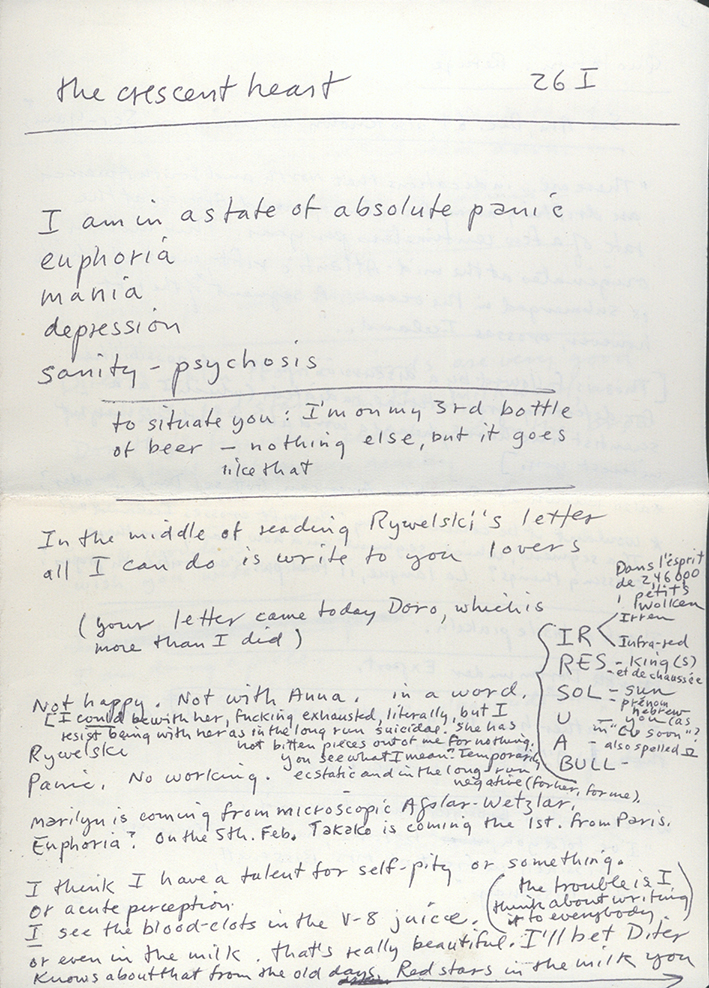 the crescent heart 26 I
I am in a state of absolute panic
euphoria
mania
depression
sanity - psychosis
to situate you: I'm on my 3rd bottle
of beer — nothing else, but it goes
like that
In the middle of reading Rywelski's letter
all I can do is write to you lovers
(your letter came today Doro, which is
more than I did)
Dans l'ésprit
de 246000
petits
wolken
IR < Irren
Infra-red
RES - King(s)
- et de chaussée
SOL - sun
- prénom
U hebrew
you (as
in "CU soon"?
A also spelled Ω
BULL -
Not happy. Not with Anna. in a word.
[I could be with her, fucking exhausted, literally, but I
resist being with her as in the long run suicidal. She has
not bitten pieces out of me for nothing.
Rywelski you see what I mean? Temporarily
Panic. No working. ecstatic and in the long run
negative (for her, for me).
Marilyn is coming from microscopic Aßlar-Wetzlar.
Euphoria? On the 5th. Feb. Takako is coming the 1st. from Paris.
I think I have a talent for self-pity or something.
Or acute perception.
(the trouble is I
think about writing
it to everybody)
I see the blood-clots in the V-8 juice.
or even in the milk. that's really beautiful. I'll bet Diter
knows about that from the old days. Red stars in the milk you